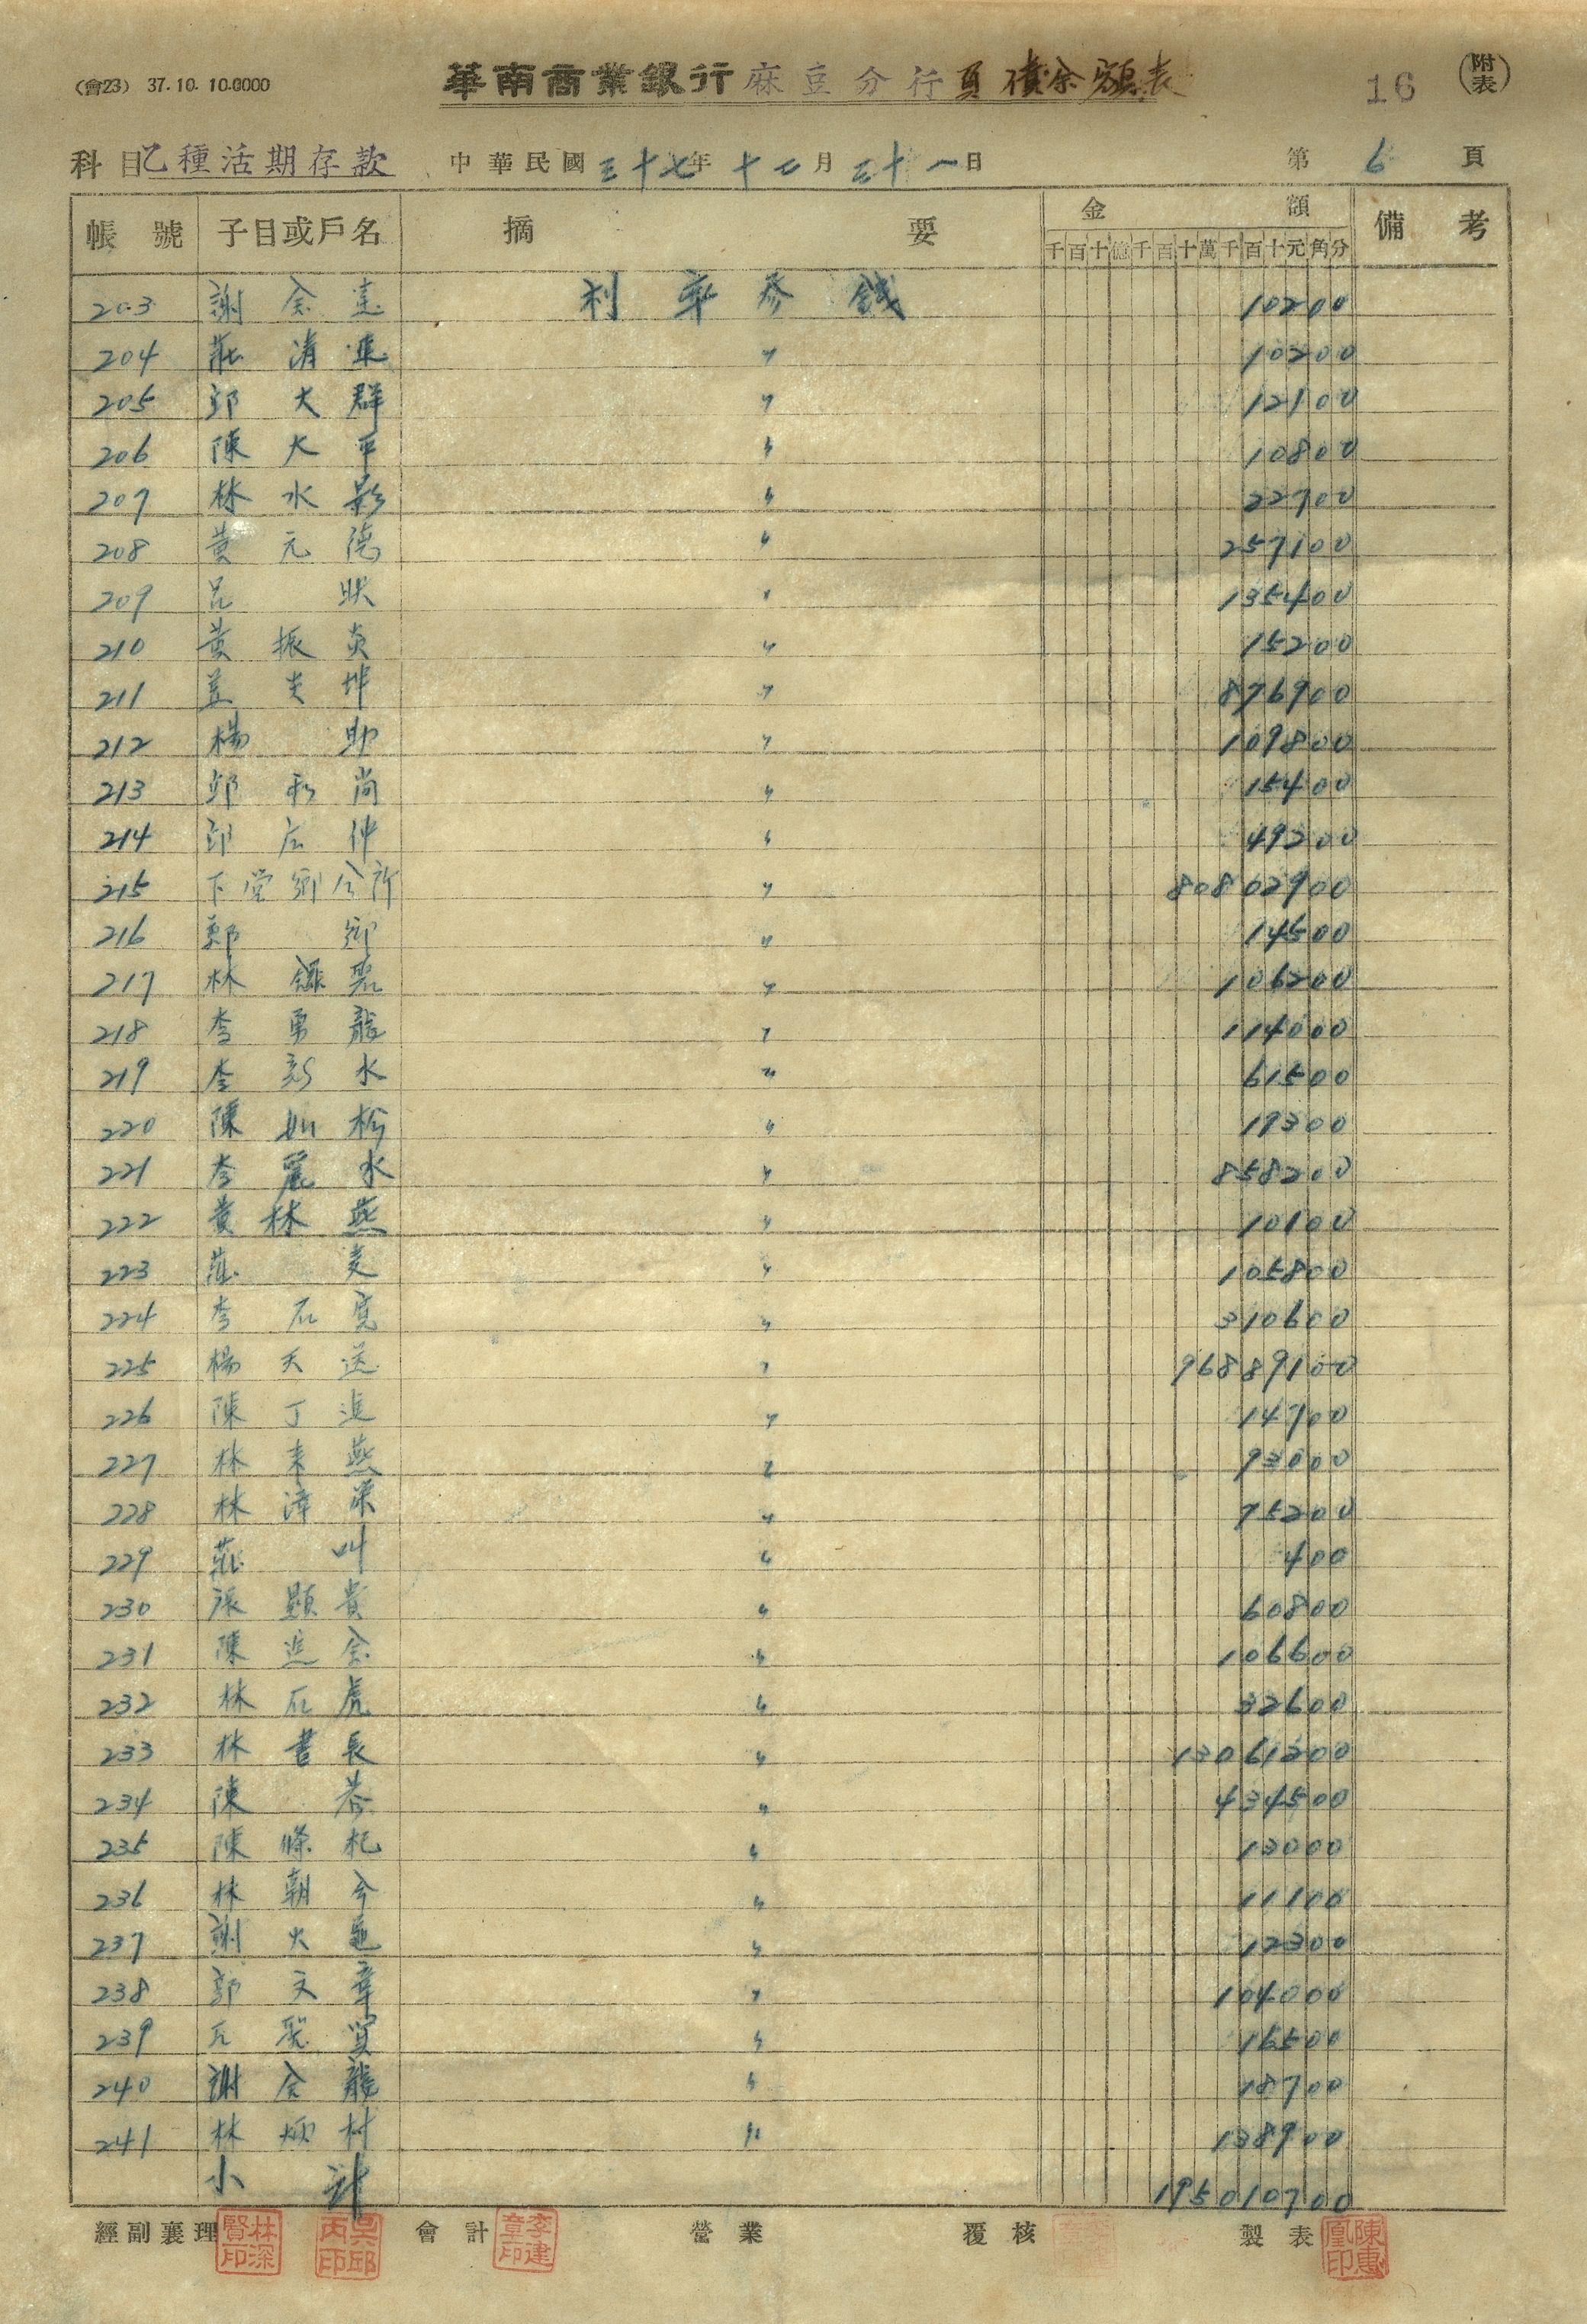 (會23) 37.10.10.0000 華南商業銀行麻豆分行負債余額表 16 (附表)
科目乙種活期存款 中華民國三十七年十二月三十一日 第6頁
帳號 子目或戶名 摘要 金額 備考
千百十億千百十萬千百十元角分
203 謝 利率參錢 10200
204 莊清 〃 10200
205 郭大群 〃 12100
206 陳太平 〃 10800
207 林水影 〃 22700
208 黃元德 〃 257100
209 呂 〃 135400
210 黃振炎 〃 15200
211 〃 876900
212 楊助 〃 109800
213 邱和尚 〃 15400
214 仲 〃 49200
215 下營鄉公所 〃 80802900
216 鄭 〃 14500
217 林 〃 106200
218 李勇龍 〃 114000
219 李水 〃 61500
220 陳如松 〃 19300
221 李麗水 〃 858200
222 黃林燕 〃 10100
223 莊麦 〃 105800
224 李石寬 〃 310600
225 楊天送 〃 96889100
226 陳丁進 〃 14700
227 林来燕 〃 93000
228 林漳栄 〃 75200
229 莊叫 〃 400
230 張顯貴 〃 60800
231 陳進金 〃 106600
232 林石虎 〃 32600
233 林書長 〃 13061200
234 陳 〃 434500
235 陳條杞 〃 13000
236 林朝今 〃 11100
237 謝火龜 〃 12300
238 郭文章 〃 104000
239 〃 16500
240 謝金龍 〃 18700
241 林村 〃 138900
小計 195010700
經副襄理 林深賢印 吳邱丙印 會計 李建章印 營業 覆核 製表 陳惠凰印